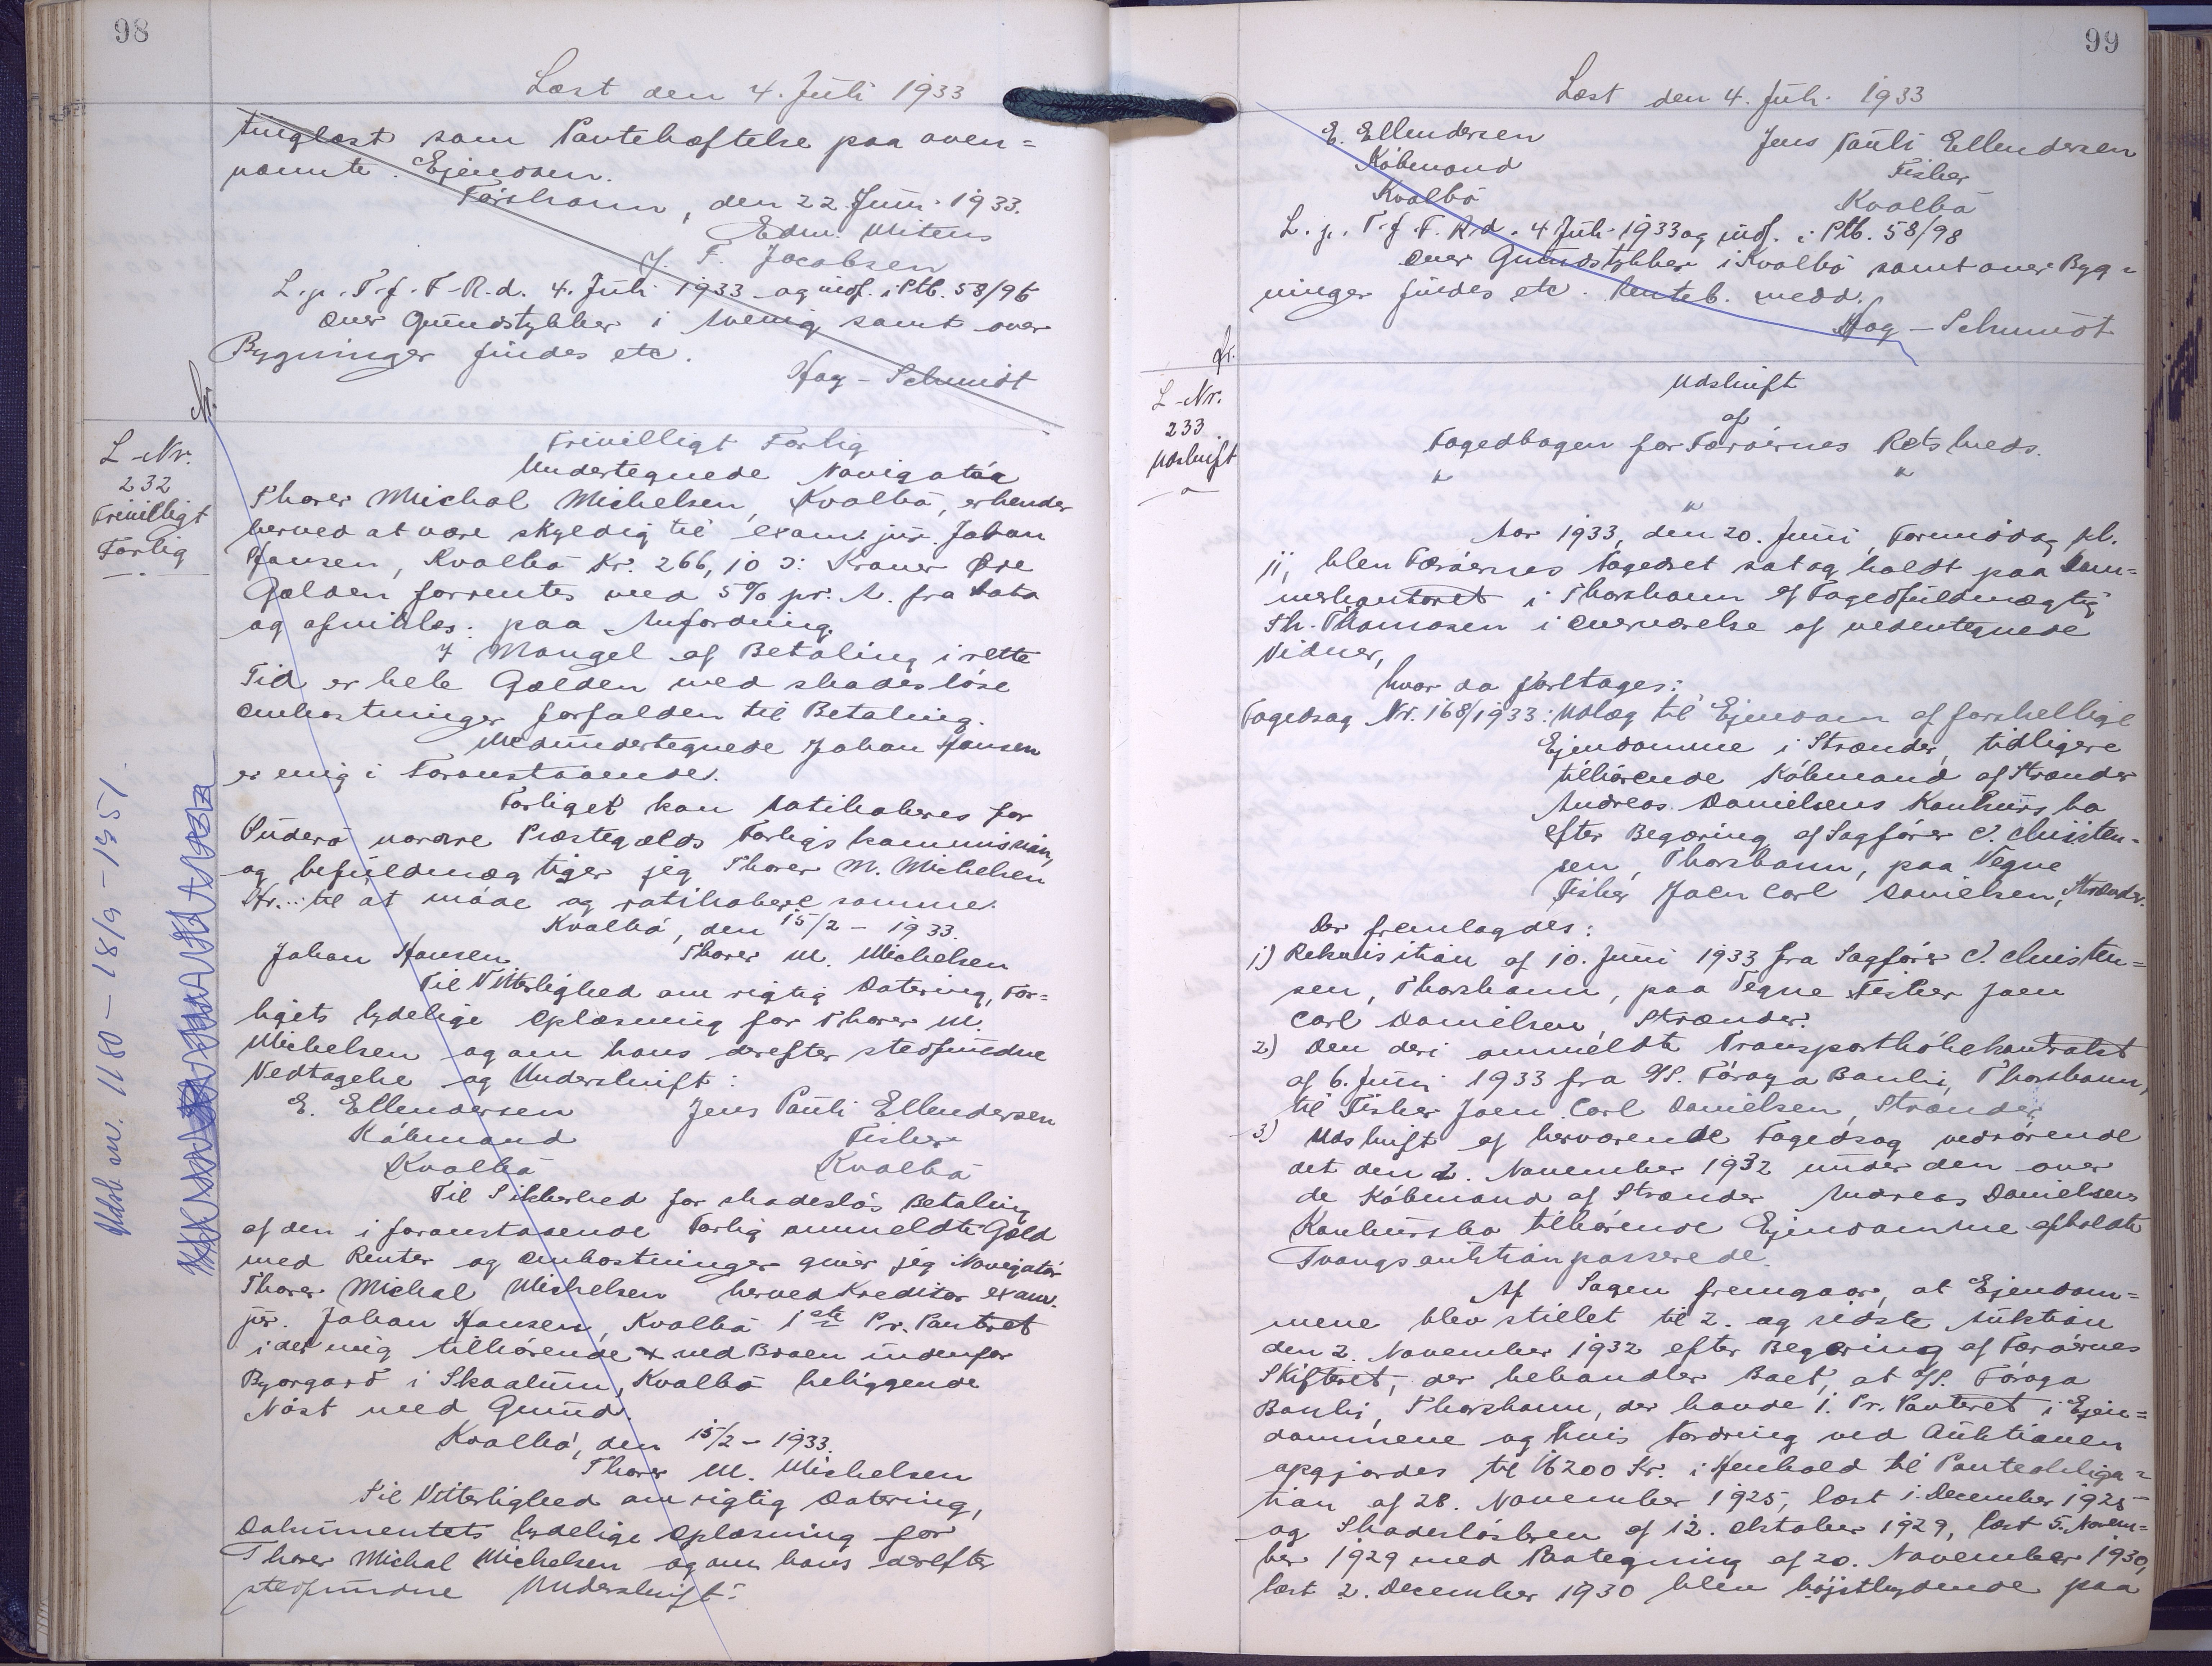 98
Læst den 4. Juli 1933
tinglæst som Pantehæftelse paa oven=
nævnte Ejendom.
Tórshavn, den 22. Juni 1933.
Edw. Mitens
J. F. Jacobsen
L. p. T. f. F. R. d. 4. Juli 1933 og indf. i Ptb. 58/96
Over Grundstykker i samt over
Bygninger findes etc.
Hay-Schmidt
L-Nr.
232
Frivilligt
Forlig
Frivilligt Forlig
Undertegnede Navigatør
Thorer Michal Michelsen, Kvalbø, erkender
herved at være skyldig til exam. jur. Johan
Hansen, Kvalbø Kr. 266,10 ɔ: Kroner Øre
Gælden forrentes med 5% pr. A. fra Dato
og afvikles: paa Anfordring.
I Mangel af Betaling i rette
Tid er hele Gælden med skadesløse
Omkostninger forfalden til Betaling.
Medundertegnede Johan Hansen
er enig i Foranstaaende.
Forliget kan ratihaberes for
Suderø nordre Præstegælds Forligskommission,
og befuldmægtiger jeg Thorer M. Michelsen
Hr... til at møde og ratihabere samme.
Kvalbø, den 15/2 - 1933.
Johan Hansen Thorer M. Michelsen
Til Vitterlighed om rigtig Datering, For=
ligets tydelige Oplæsning for Thorer M.
Michelsen og om hans derefter stedfundne
Vedtagelse og Underskrift:
E. Ellendersen Jens Pauli Ellendersen
Købmand Fisker
Kvalbø Kvalbø
Til Sikkerhed for skadesløs Betaling
af den i foranstaaende Forlig ommeldte Gæld
med Renter og Omkostninger giver jeg Navigatør
Thorer Michal Michelsen herved Kreditor exam.
jur. Johan Hansen, Kvalbø 1ste Pr. Panteret
i det mig tilhørende x ved Broen indenfor
Bøorgard i Skaalum, Kvalbø beliggende
Nøst med Grund.
Kvalbø, den 15/2 - 1933.
Thorer M. Michelsen
Til Vitterlighed om rigtig Datering,
Dokumentets tydelige Oplæsning for
Thorer Michal Michelsen og om hans derefter
stedfundne Underskrift:
Udsl. an. 1180 - 18/9 - 1951.
99
Læst den 4. Juli 1933
E. Ellendersen Jens Pauli Ellendersen
Købmand Fisker
Kvalbø Kvalbø
L. p. T. f. F. R. d. 4 Juli 1933 og indf. i Ptb. 58/98
Over Grundstykker i Kvalbø samt over Byg=
ninger findes etc. Panteb. medd.
Hay-Schmidt
fr.
L-Nr.
233
Udskrift
Udskrift
af
Fogedbogen for Færøernes Retskreds.
" " "
Aar 1933, den 20. Juni, Formiddag kl.
11, blev Færøernes Fogedret sat og holdt paa Dom=
merkontoret i Thorshavn af Fogedfuldmægtig
Th. Thomasen i Overværelse af nedentegnede
Vidner,
hvor da foretages:
Fogedsag Nr. 168/1933: Udlæg til Ejendom af forskellige
Ejendomme i Strænder, tidligere
tilhørende Købmand af Strænder
Andreas Danielsens Konkurs bo
efter Begæring af Sagfører C. Christen=
sen, Thorshavn, paa Vegne
Fisker Joen Carl Danielsen, Strænder.
Der fremlagdes:
1) Rekvisition af 10. Juni 1933 fra Sagfører C. Christen=
sen, Thorshavn, paa Vegne Fisker Joen
Carl Danielsen, Strænder.
2.) Den deri ommeldte Transportkøbekontrakt
af 6. Juni 1933 fra A/S. Føroya Banki, Thorshavn,
til Fisker Joen Carl Danielsen, Strænder
3.) Udskrift af herværende Fogedsag vedrørende
det den 2. November 1932 under den over
de Købmand af Strænder Andreas Danielsens
Konkursbo tilhørende Ejendomme afholdte
Tvangsauktion passerede.
Af Sagen fremgaar, at Ejendom=
mene blev stillet til 2. og sidste Auktion
den 2. November 1932 efter Begæring af Færøernes
Skifteret, der behandler Boet, at A/S. Føroya
Banki, Thorshavn, der havde 1. Pr. Panteret i Ejen=
dommene og hvis Fordring ved Auktionen
opgjordes til 16200 Kr. i Henhold til Panteobliga=
tion af 28. November 1925, læst 1. December 1925
og Skadesløsbrev af 12. Oktober 1929, læst 5. Novem=
ber 1929 med Paategning af 20. November 1930,
læst 2. December 1930 blev højstbydende paa